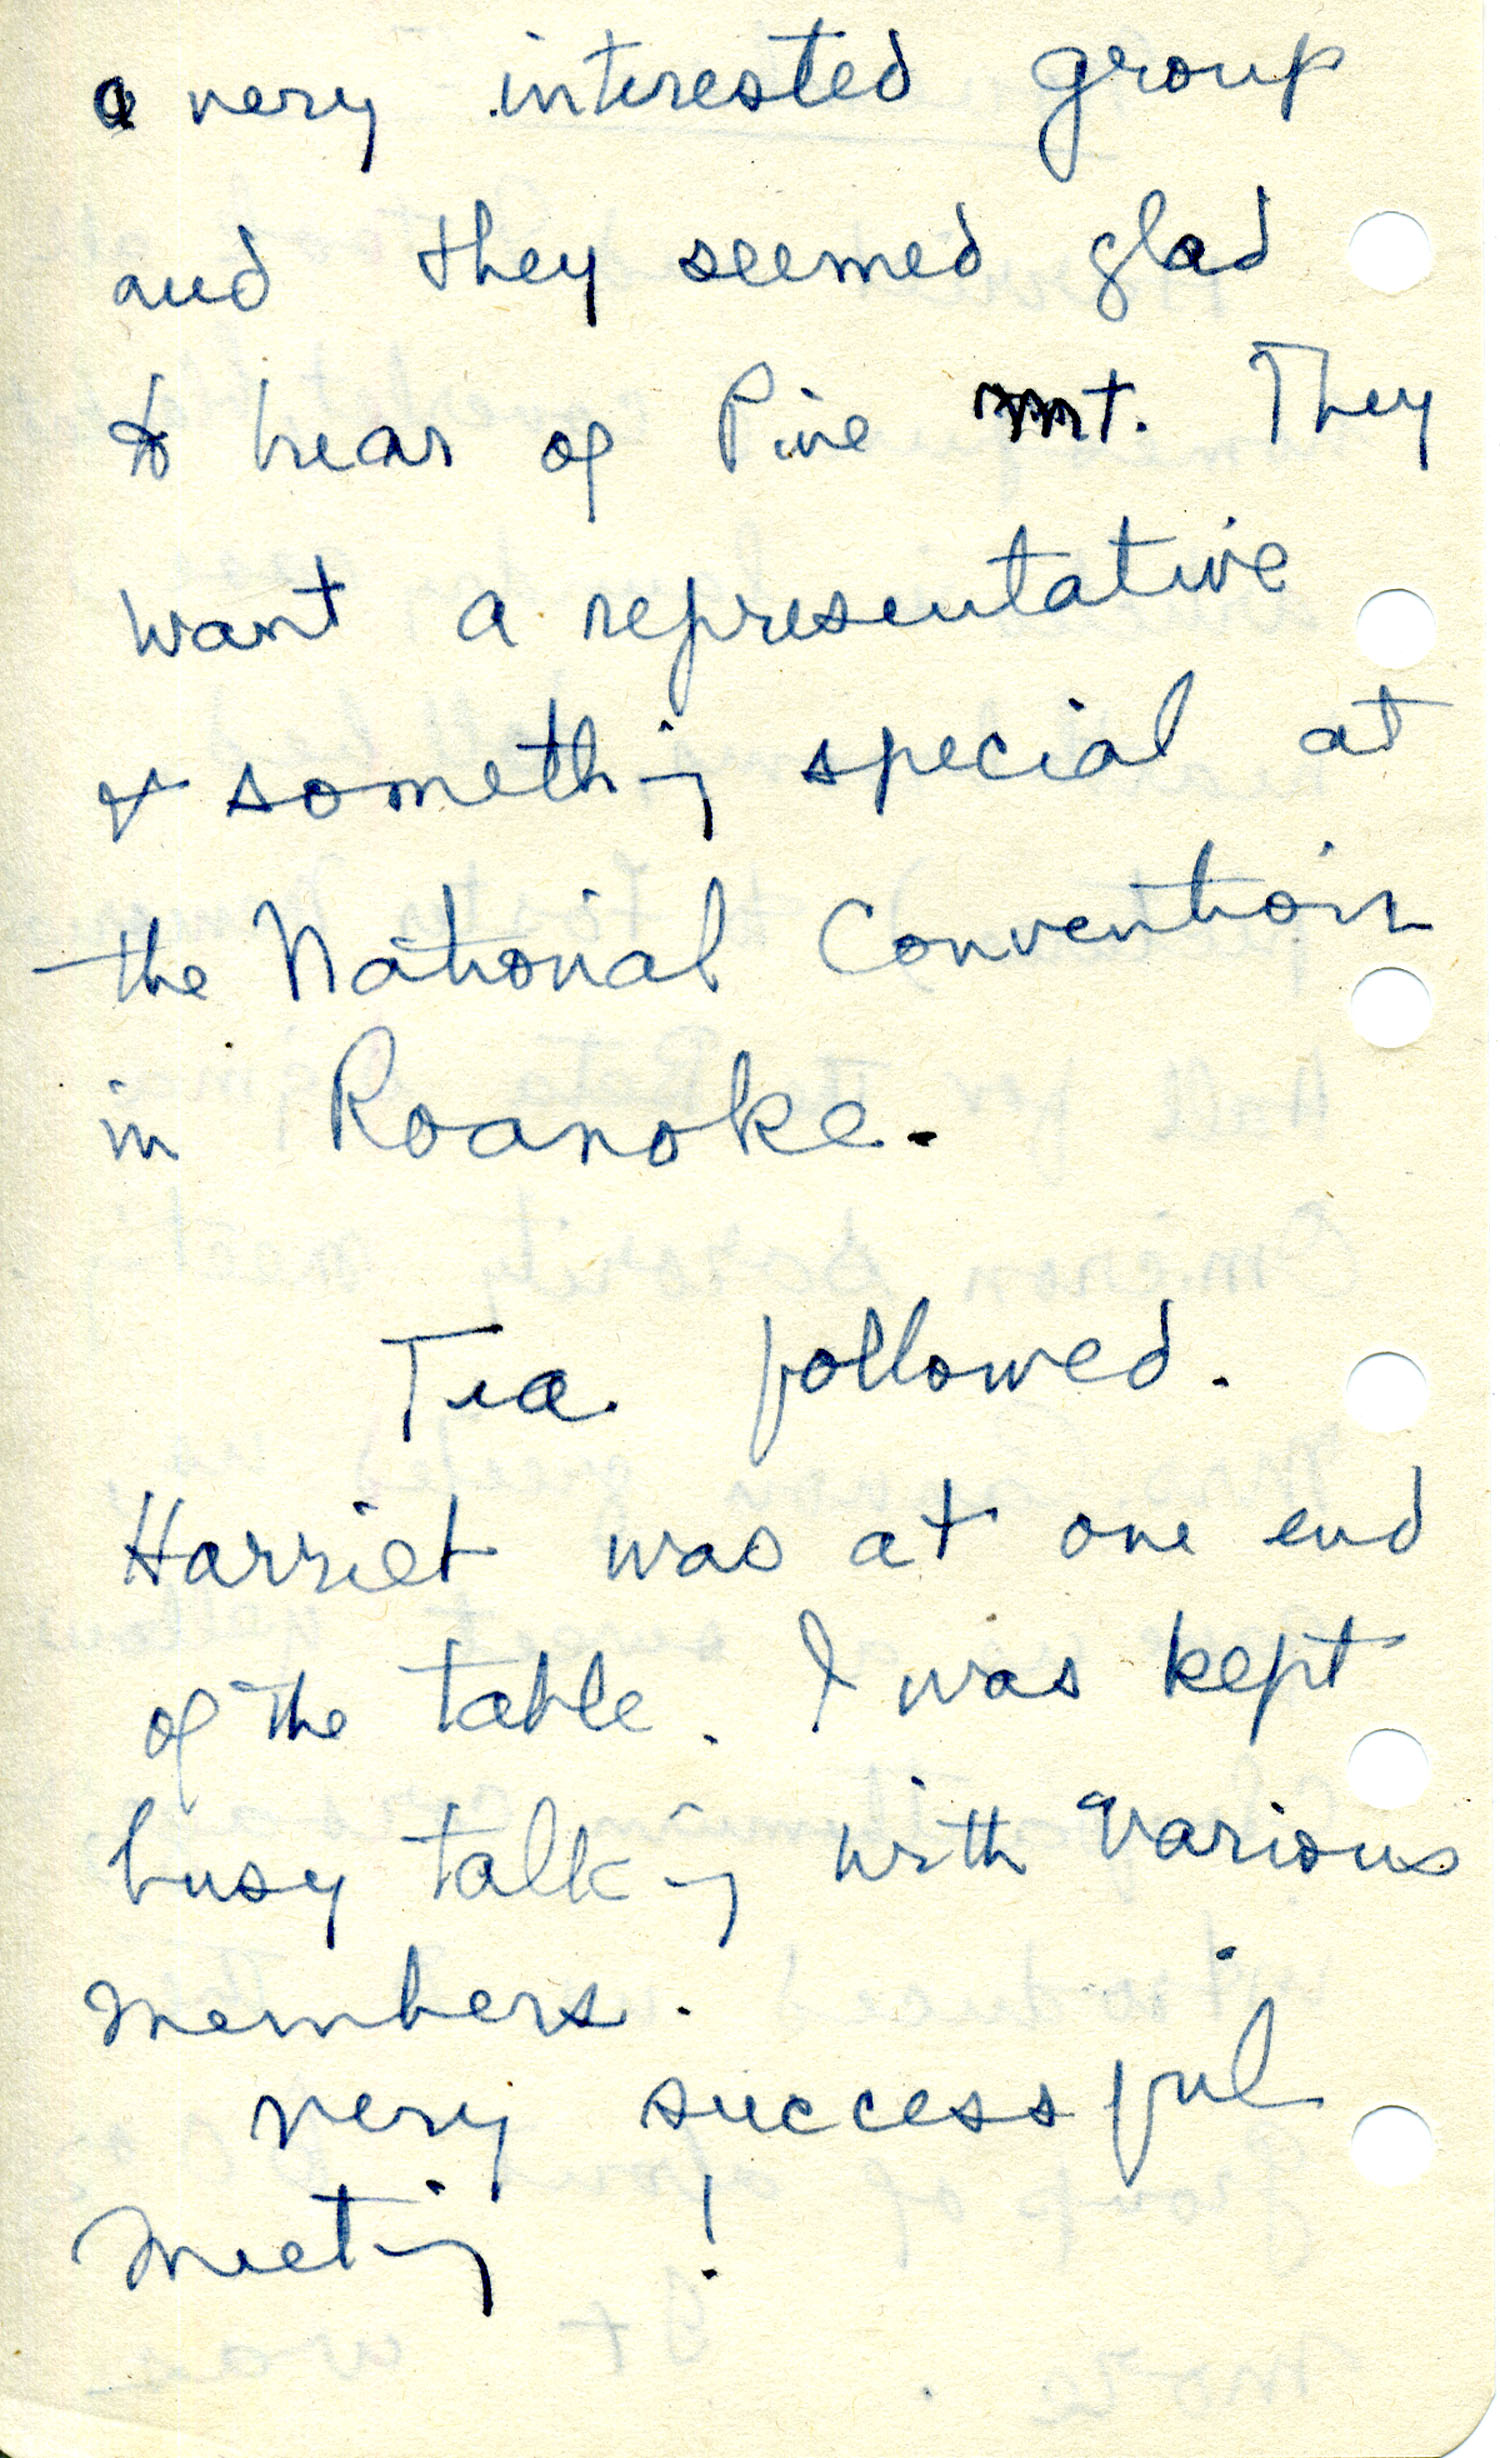 a very interested group
and they seemed glad
to hear of Pine Mt. They
want a representative
& something special at
the National Convention
in Roanoke.
Tea followed.
Harriet was at one end
of the table. I was kept
busy talking with various
members.
very successful
meeting !